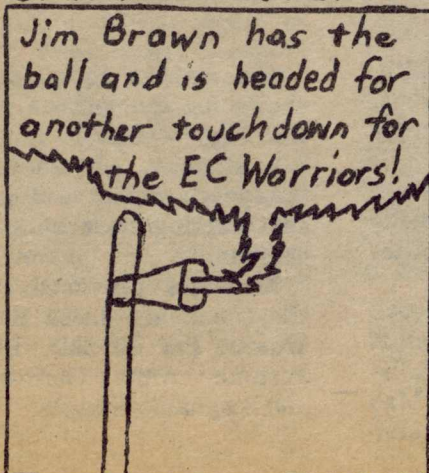 Jim Brown has the
ball and is headed for
another touchdown for
the EC Warriors!